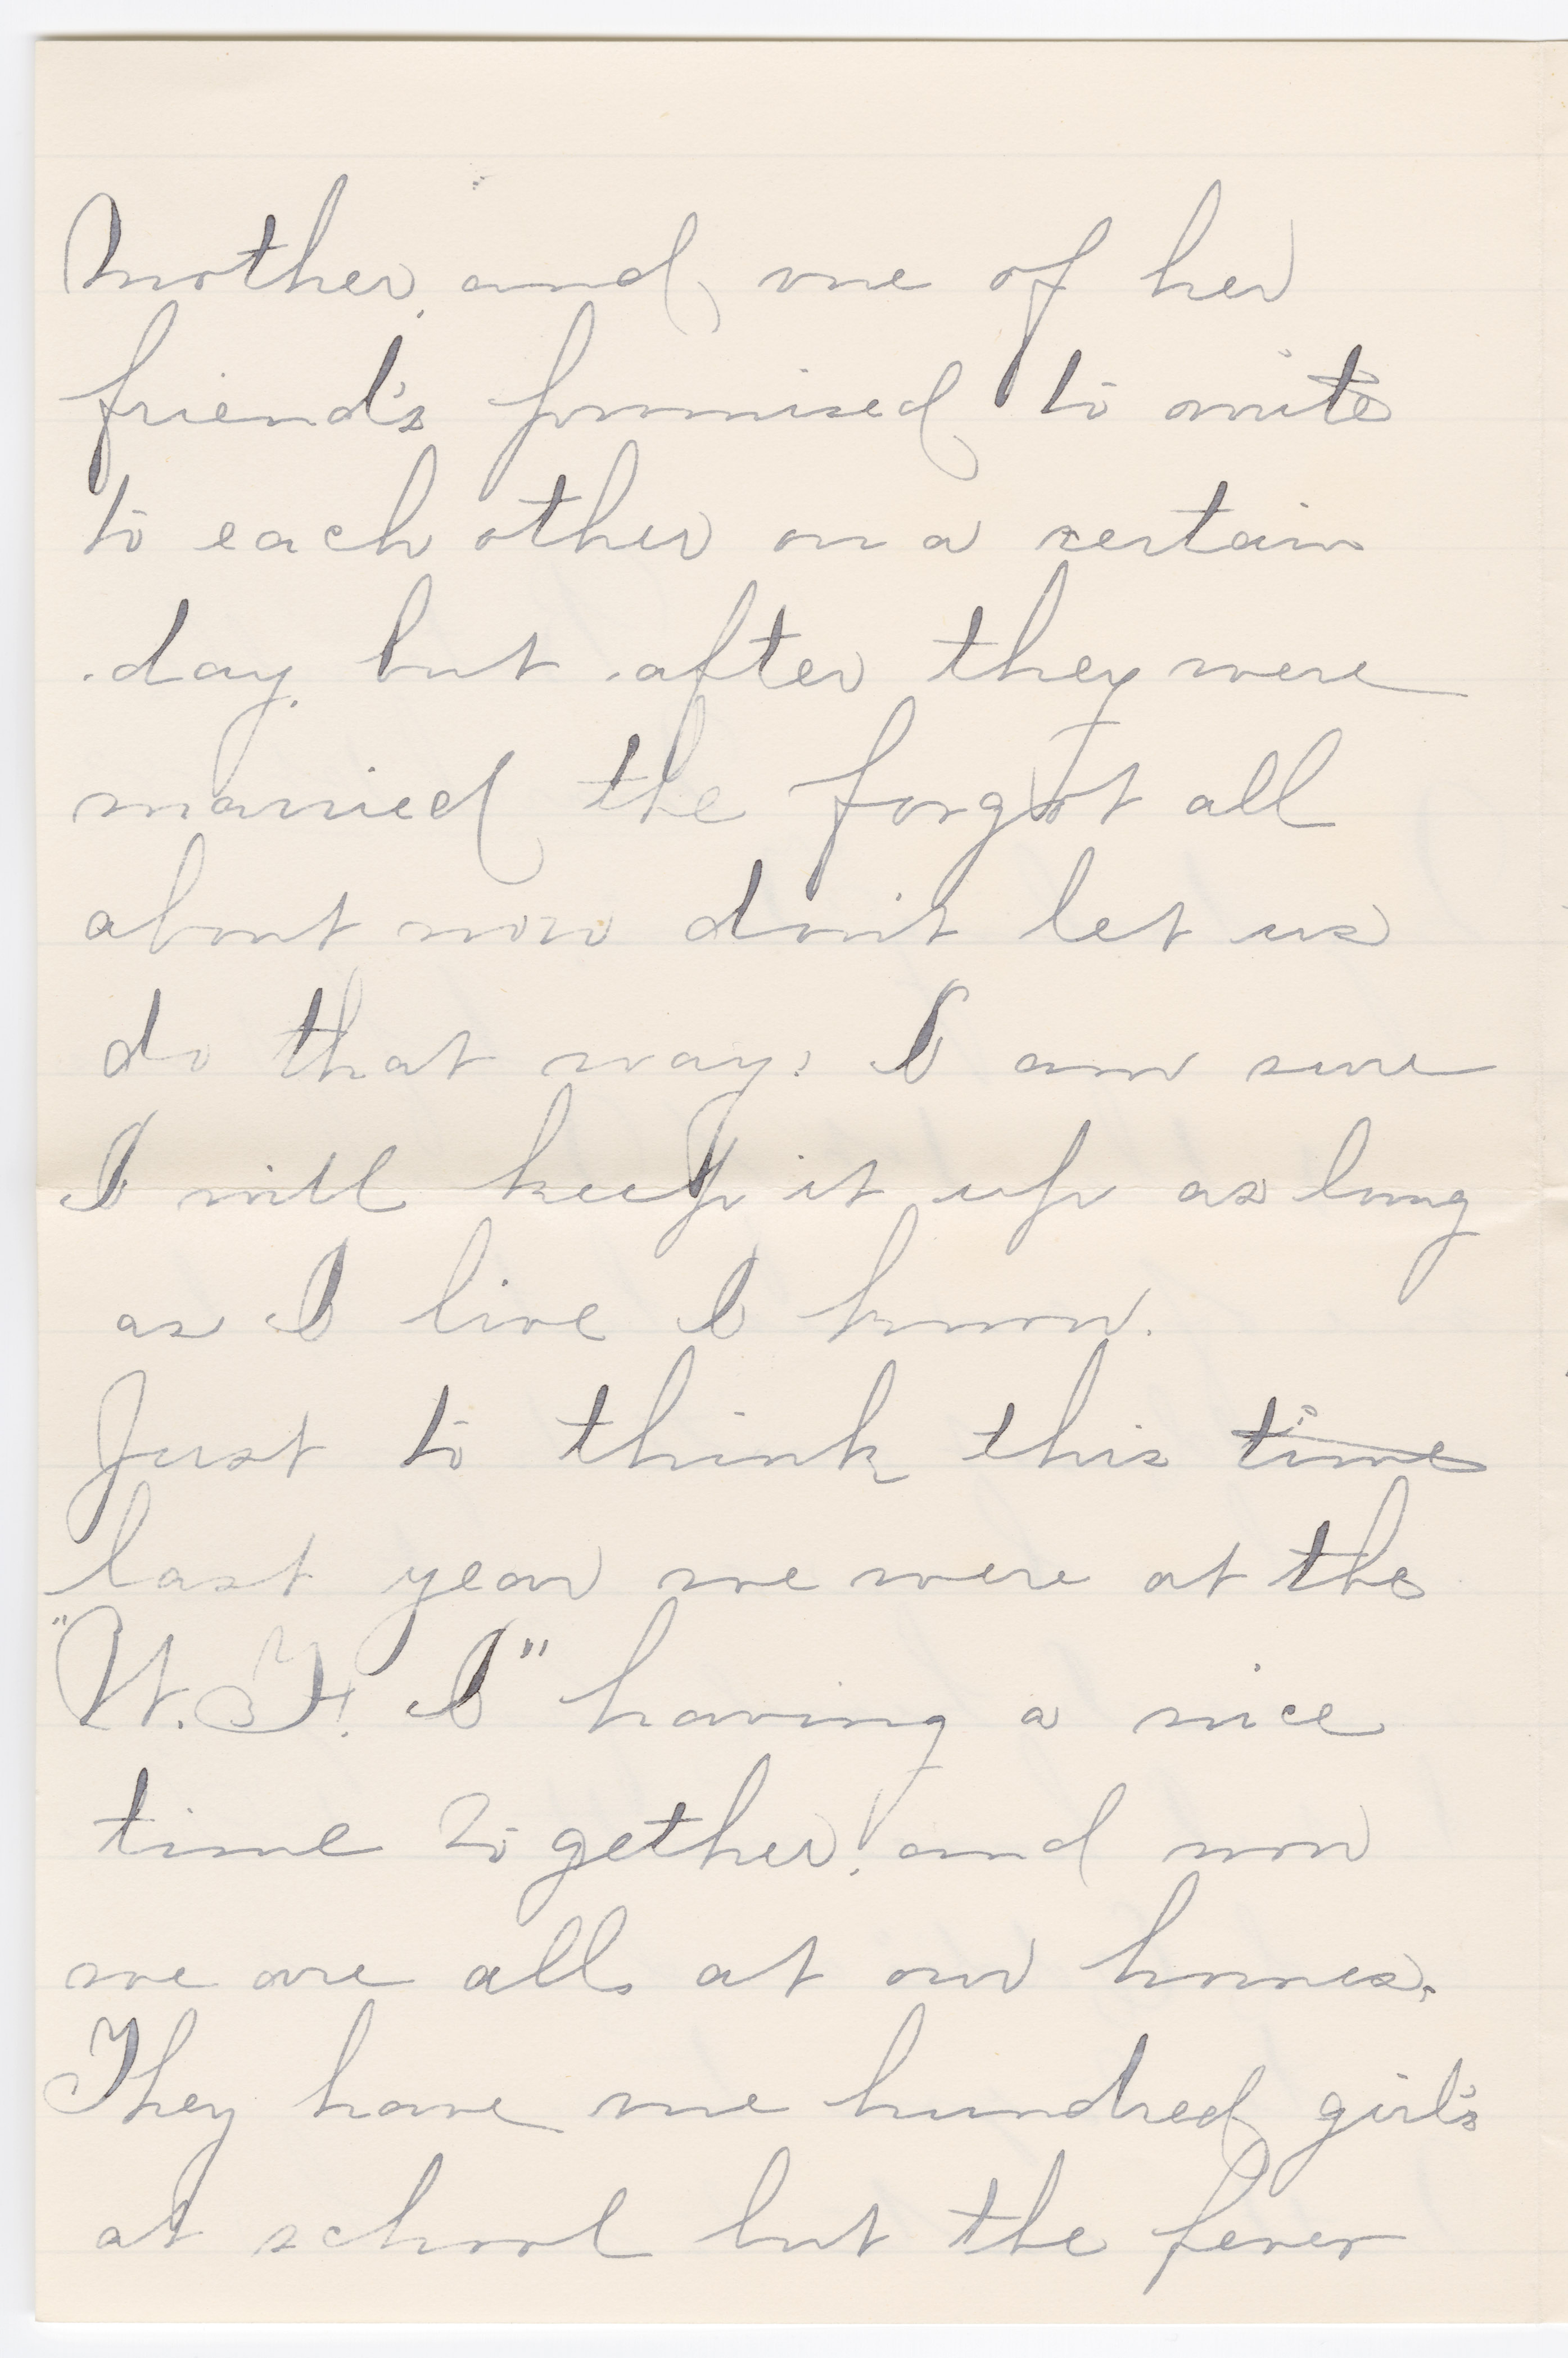 Mother, and, one of her
friend's prommised to write
to each other on a certain
day, but after they were
married the forgot all
about now don't let us
do that way; I am sure
I will keep it up as long
as I live I know.
Just to think this time
last year we were at the
"W. F. I" having a nice
time together! and now
we are all at our homes.
They have one hundred girl's
at school but the fever